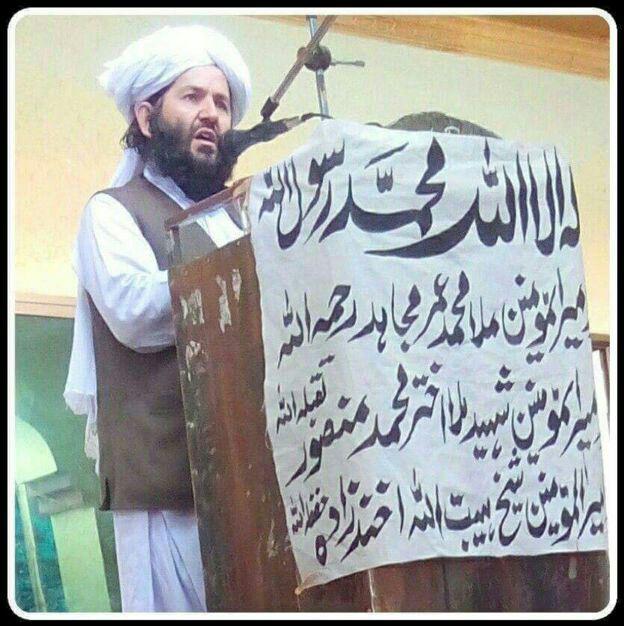 لا اله الا الله محمد رسول الله
امیرالمؤمنین ملا محمد عمر مجاهد رحمه الله
امیرالمؤمنین شهید ملا اختر محمد منصور تقبله الله
امیرالمؤمنین شیخ هیبت الله اخندزاده حفظه الله